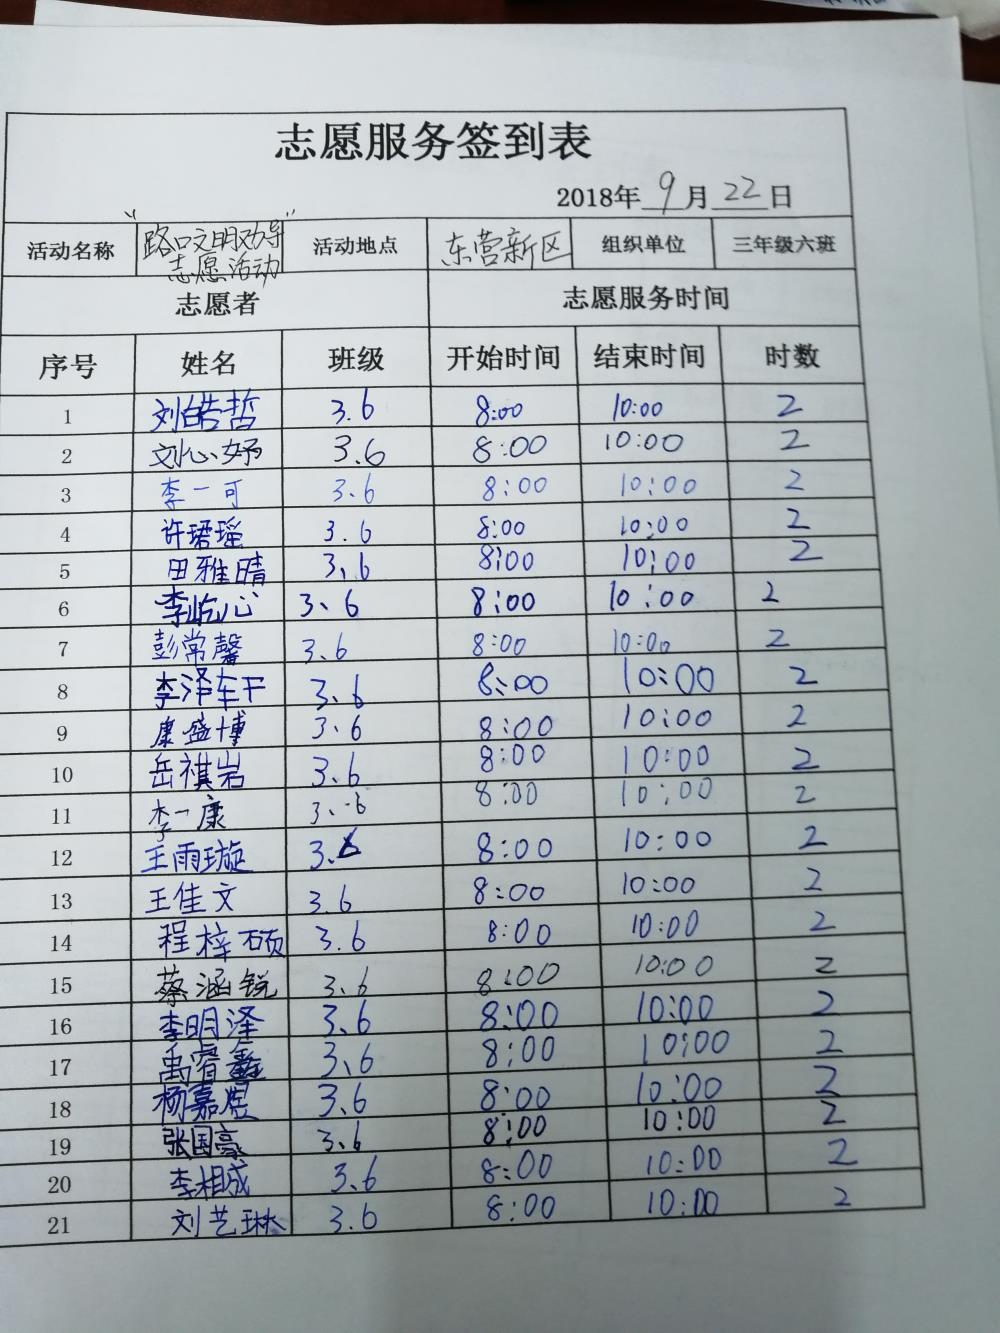 志愿服务签到表
2018年 9 月 22 日
活动名称 “路口文明劝导” 志愿活动 活动地点 东营新区 组织单位 三年级六班
志愿者 志愿服务时间
序号 姓名 班级 开始时间 结束时间 时数
1 刘皓哲 3.6 8:00 10:00 2
2 刘心妤 3.6 8:00 10:00 2
3 李一可 3.6 8:00 10:00 2
4 许珺瑶 3.6 8:00 10:00 2
5 田雅晴 3、6 8:00 10:00 2
6 李屹心 3、6 8:00 10:00 2
7 彭常馨 3.6 8:00 10:00 2
8 李泽轩 3、6 8:00 10:00 2
9 康盛博 3、6 8:00 10:00 2
10 岳祺岩 3.6 8:00 10:00 2
11 李一康 3、6 8:00 10:00 2
12 王雨璇 3.6 8:00 10:00 2
13 王佳文 3.6 8:00 10:00 2
14 程梓硕 3.6 8:00 10:00 2
15 蔡涵锐 3.6 8:00 10:00 2
16 李明泽 3、6 8:00 10:00 2
17 禹睿鑫 3、6 8:00 10:00 2
18 杨嘉煜 3、6 8:00 10:00 2
19 张国豪 3、6 8:00 10:00 2
20 李相成 3、6 8:00 10:00 2
21 刘艺琳 3.6 8:00 10:00 2